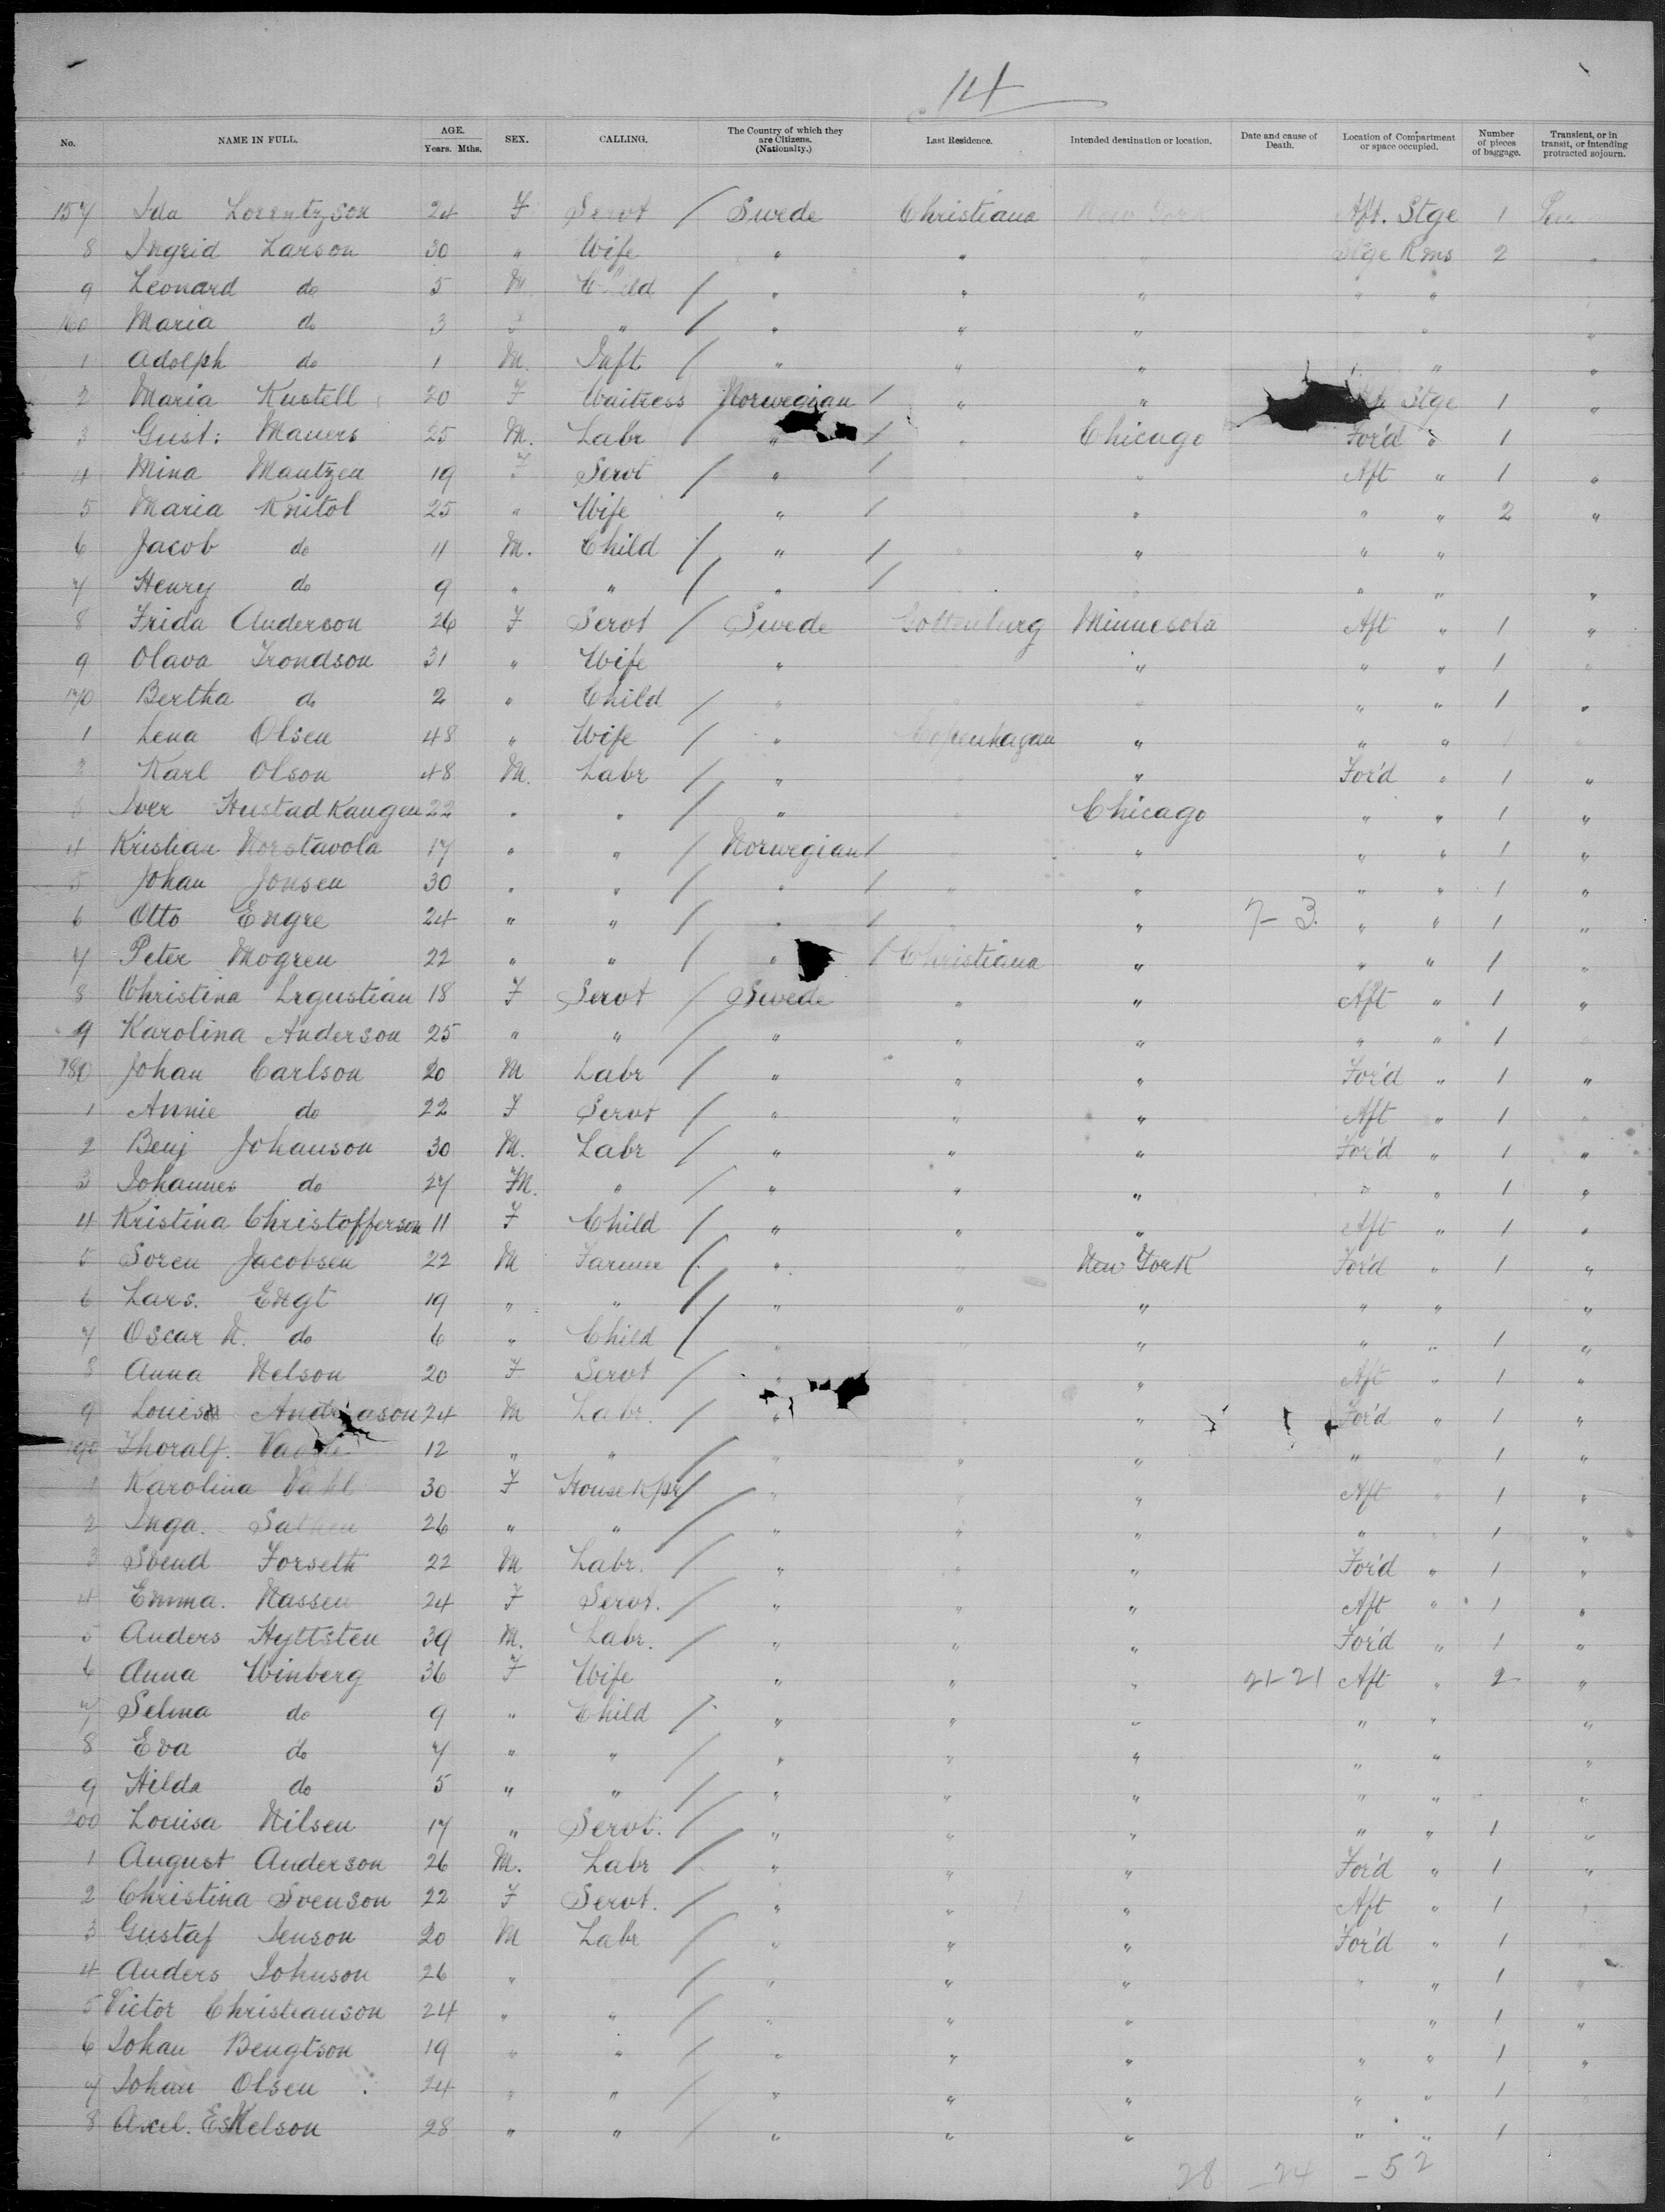 14
No. NAME IN FULL. AGE. Years. Mths. SEX. CALLING. The Country of which they are Citizens. (Nationalty.) Last Residence. Intended destination or location. Date and cause of Death. Location of Compartment or space occupied. Number of pieces of baggage. Transient, or in transit, or intending protracted sojourn.
157 Ida Lorentzson 24 F Servt / Swede Christiana New York Aft. Stge 1
8 Ingrid Larson 30 " Wife " " " Stge Rms 2 "
9 Leonard do 5 M Child / " " " " "
160 Maria do 3 F " / " " " " "
1 Adolph do 1 M. Inft / " " " " "
2 Maria Kustell 20 F Waitress Norwegian / " " Stge 1 "
3 Gust: Mauers 25 M. Labr / " / " Chicago For'd " 1
4 Mina Mautzen 19 F Servt / " / " Aft " 1 "
5 Maria Knitol 25 " Wife " / " " " 2 "
6 Jacob do 4 M. Child / " / " " "
7 Henry do 9 " " / " / " " " "
8 Frida Anderson 26 F Servt / Swede Gottenburg Minnesota Aft " 1 "
9 Olava Trondson 31 " Wife " " " " 1 "
170 Bertha do 2 " Child / " " " " 1 "
1 Lena Olsen 48 " Wife / " Copenhagan " " " 1 "
2 Karl Olson 48 M. Labr / " " For'd " 1 "
3 Iver Hustad Kaugen 22 " " / " Chicago " " 1 "
4 Kristian Norstavola 17 " " / Norwegian / " " " 1 "
5 Johan Jonsen 30 " " / " / " " " 1 "
6 Otto Engre 24 " " / " / " 7-3. " " 1 "
7 Peter Mogren 22 " " / " / Christiana " " " 1 "
8 Christina Lrgustian 18 F Servt / Swede " " Aft " 1 "
9 Karolina Anderson 25 " " / " " " " " 1 "
180 Johan Carlson 20 M Labr / " " " For'd " 1 "
1 Annie do 22 F Servt / " " " Aft " 1 "
2 Benj Johanson 30 M. Labr / " " " For'd " 1 "
3 Johannes do 27 M. " / " " " " " 1 "
4 Kristina Christofferson 11 F Child / " " " Aft " 1 "
5 Soren Jacobsen 22 M Farmer / " " New York For'd " 1 "
6 Lars. Engt 19 " " / " " " " " "
7 Oscar N. do 6 " Child / " " " " " 1 "
8 Anna Nelson 20 F Servt / " " " Aft " 1 "
9 Louis 24 M Labr. / " " " For'd " 1 "
190 Thoralf. 12 " " / " " " " " 1 "
1 Karolina Vahl 30 F Housekpr / " " " Aft " 1 "
2 Inga. Sathen 26 " " / " " " " " 1 "
3 Svend Forseth 22 M Labr. / " " " For'd " 1 "
4 Emma. Nassen 24 F Servt. / " " " Aft " 1 "
5 Anders Hyttsten 39 M. Labr. / " " " For'd " 1 "
6 Anna Winberg 36 F Wife " " " 21-21 Aft " 2 "
7 Selma do 9 " Child / " " " " " "
8 Eva do 7 " " / " " " " " "
9 Hilda do 5 " " / " " " " " "
200 Louisa Nilsen 17 " Servt. / " " " " " 1 "
1 August Anderson 26 M. Labr / " " " For'd " 1 "
2 Christina Svenson 22 F Servt. / " " " Aft " 1 "
3 Gustaf Jenson 20 M Labr / " " " For'd " 1
4 Anders Johnson 26 " / " " " " " 1 "
5 Victor Christianson 24 " " / " " " " 1 "
6 Johan Bengtson 19 " " / " " " " " 1 "
7 Johan Olsen 24 " " / " " " " " 1
8 Axel. Eskelson 28 " " / " " " " " 1
28 - 24 - 52